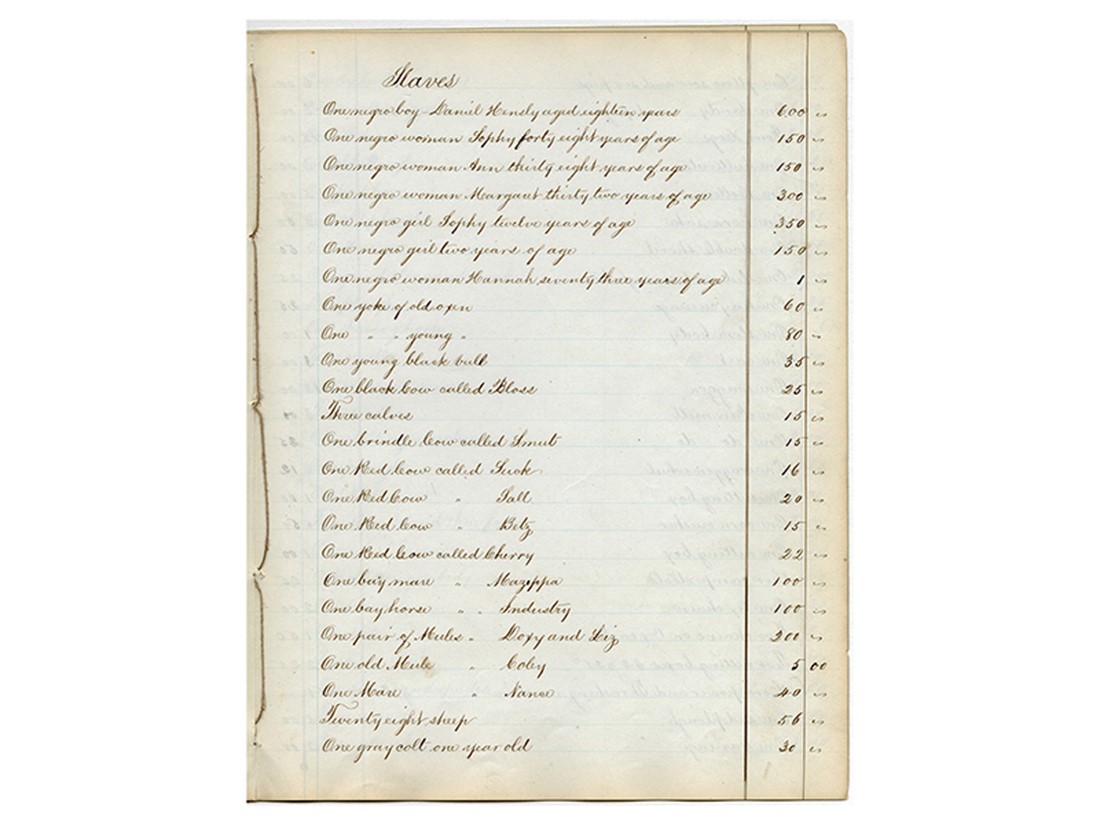 Slaves
One negro boy - Daniel Hensly aged eighteen years 600 "
One negro woman Sophy forty eight years of age 150 "
One negro woman Ann thirty eight years of age 150 "
One negro woman Margaret thirty two years of age 300 "
One negro girl Sophy twelve years of age 350 "
One negro girl two years of age 150 "
One negro woman Hannah seventy three years of age 1 "
One yoke of old oxen 60 "
One " " young " 80 "
One young black bull 35 "
One black Cow called Bloss 25 "
Three calves 15 "
One brindle Cow called Smut 15 "
One Red Cow called Suck 16 "
One Red Cow " Sall 20 "
One Red Cow " Betz 15 "
One Red Cow called Cherry 22 "
One bay mare " Mazeppa 100 "
One bay horse " " Industry 100 "
One pair of Mules " Doxy and Liz 200 "
One old Mule " Coley 5 00
One Mare " Nance 40 "
Twenty eight sheep 56 "
One gray colt one year old 30 "